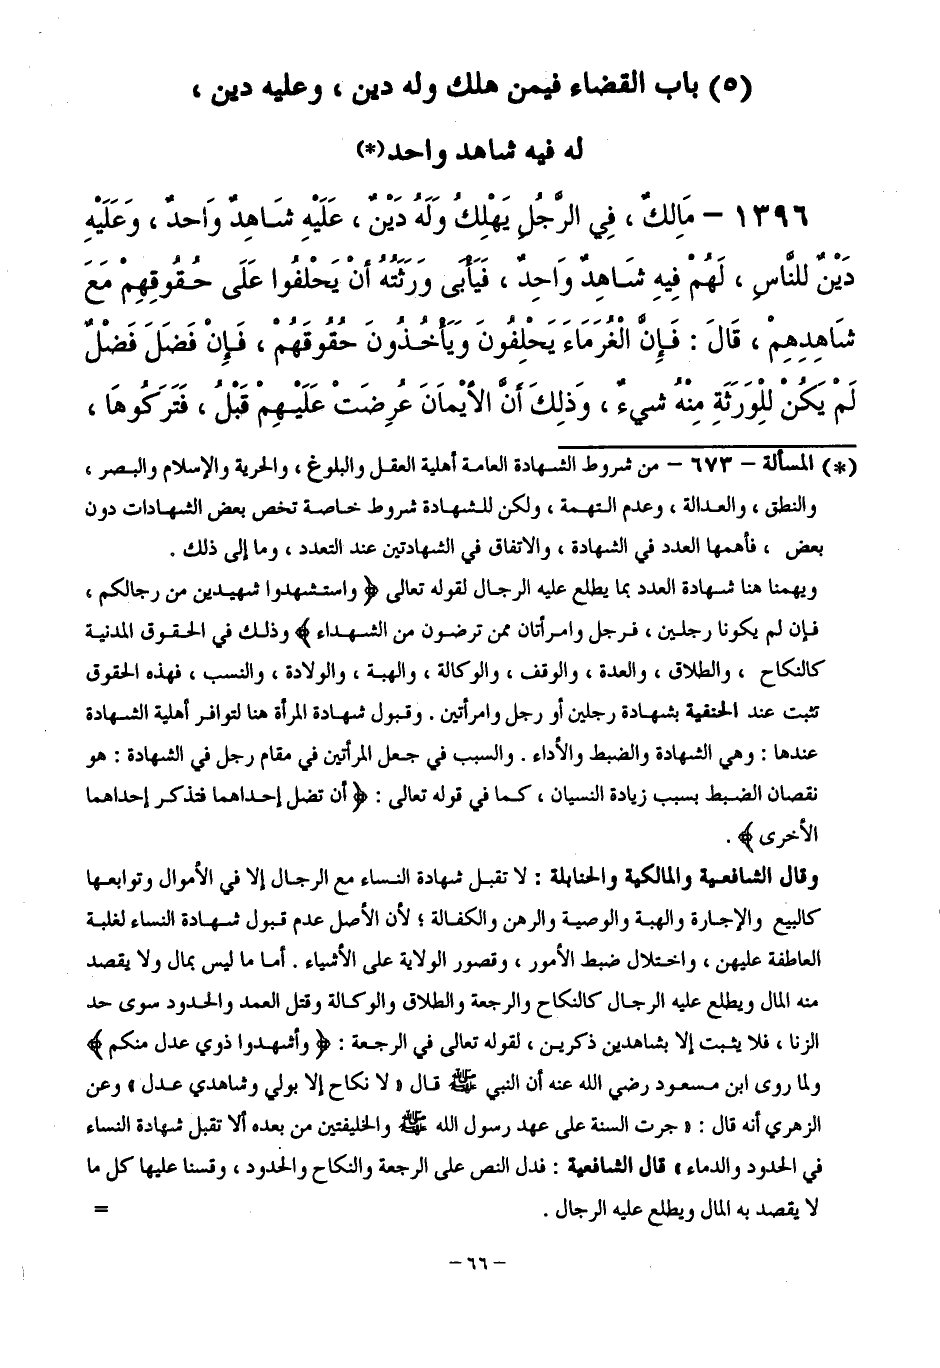 (٥) باب القضاء فيمن هلك وله دين ، وعليه دين ،
له فيه شاهد واحد(*)
١٣٩٦ – مَالِكٌ ، فِي الرَّجُلِ يَهْلِكُ وَلَهُ دَيْنٌ ، عَلَيْهِ شَاهِدٌ وَاحدٌ ، وَعَلَيْهِ
دَيْنٌ للنَّاسِ ، لَهُمْ فِيهِ شَاهِدٌ وَاحِدٌ ، فَيَأبَى وَرَثَتُهُ أنْ يَحْلفُوا عَلَى حُقُوقِهِمْ مَعَ
شَاهِدِهِمْ ، قَالَ : فَإِنَّ الْغُرَمَاءَ يَحلِفُونَ وَيَأْخُذُونَ حُقُوقَهُمْ ، فَإِنْ فَضَلَ فَضْلٌ
لَمْ يَكُنْ لِلْوَرَثَةِ مِنْهُ شَيءٌ ، وَذَلِكَ أنَّ الأيْمَانَ عُرِضَتْ عَلَيْهِمْ قَبْلُ ، فَتَرَكُوهَا ،
(*) المسألة – ٦٧٣ – من شروط الشهادة العامة أهلية العقل والبلوغ ، والحرية والإسلام والبصر ،
والنطق ، والعدالة ، وعدم التهمة ، ولكن للشهادة شروط خاصة تخص بعض الشهادات دون
بعض ، فأهمها العدد في الشهادة ، والاتفاق في الشهادتين عند التعدد ، وما إلى ذلك .
ويهمنا هنا شهادة العدد بما يطلع عليه الرجال لقوله تعالى ﴿ واستشهدوا شهيدين من رجالكم ،
فإن لم يكونا رجلين ، فرجل وامرأتان ممن ترضون من الشهداء ﴾ وذلك في الحقوق المدنية
كالنكاح ، والطلاق ، والعدة ، والوقف ، والوكالة ، والهبة ، والولادة ، والنسب ، فهذه الحقوق
تثبت عند الحنفية بشهادة رجلين أو رجل وامرأتين . وقبول شهادة المرأة هنا لتوافر أهلية الشهادة
عندها : وهي الشهادة والضبط والأداء . والسبب في جعل المرأتين في مقام رجل في الشهادة : هو
نقصان الضبط بسبب زيادة النسيان ، كما في قوله تعالى : ﴿ أن تضل إحداهما فتذكر إحداهما
الأخرى ﴾ .
وقال الشافعية والمالكية والحنابلة : لا تقبل شهادة النساء مع الرجال إلا في الأموال وتوابعها
كالبيع والإجارة والهبة والوصية والرهن والكفالة ؛ لأن الأصل عدم قبول شهادة النساء لغلبة
العاطفة عليهن ، واختلال ضبط الأمور ، وقصور الولاية على الأشياء . أما ما ليس بمال ولا يقصد
منه المال ويطلع عليه الرجال كالنكاح والرجعة والطلاق والوكالة وقتل العمد والحدود سوى حد
الزنا ، فلا يثبت إلا بشاهدين ذكرين ، لقوله تعالى في الرجعة : ﴿ وأشهدوا ذوي عدل منكم ﴾
ولما روى ابن مسعود رضي الله عنه أن النبي ﷺ قال « لا نكاح إلا بولي وشاهدي عدل » وعن
الزهري أنه قال : « جرت السنة على عهد رسول الله ﷺ والخليفتين من بعده ألا تقبل شهادة النساء
في الحدود والدماء » قال الشافعية : فدل النص على الرجعة والنكاح والحدود ، وقسنا عليها كل ما
لا يقصد به المال ويطلع عليه الرجال . =
– ٦٦ –